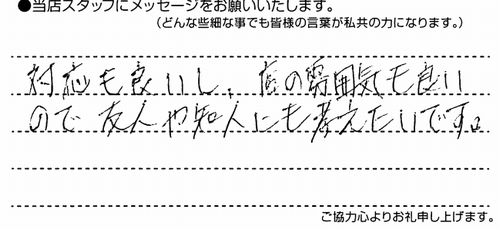 ●当店スタッフにメッセージをお願いいたします。
（どんな些細な事でも皆様の言葉が私共の力になります。）
対応も良いし、店の雰囲気も良い
ので友人や知人にも考えたいです。
ご協力心よりお礼申し上げます。